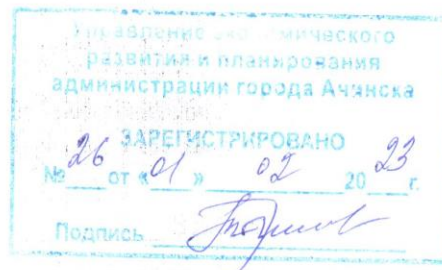 Управление экономического
развития и планирования
администрации города Ачинска
ЗАРЕГИСТРИРОВАНО
№ 26 от «01» 02 2023 г.
Подпись